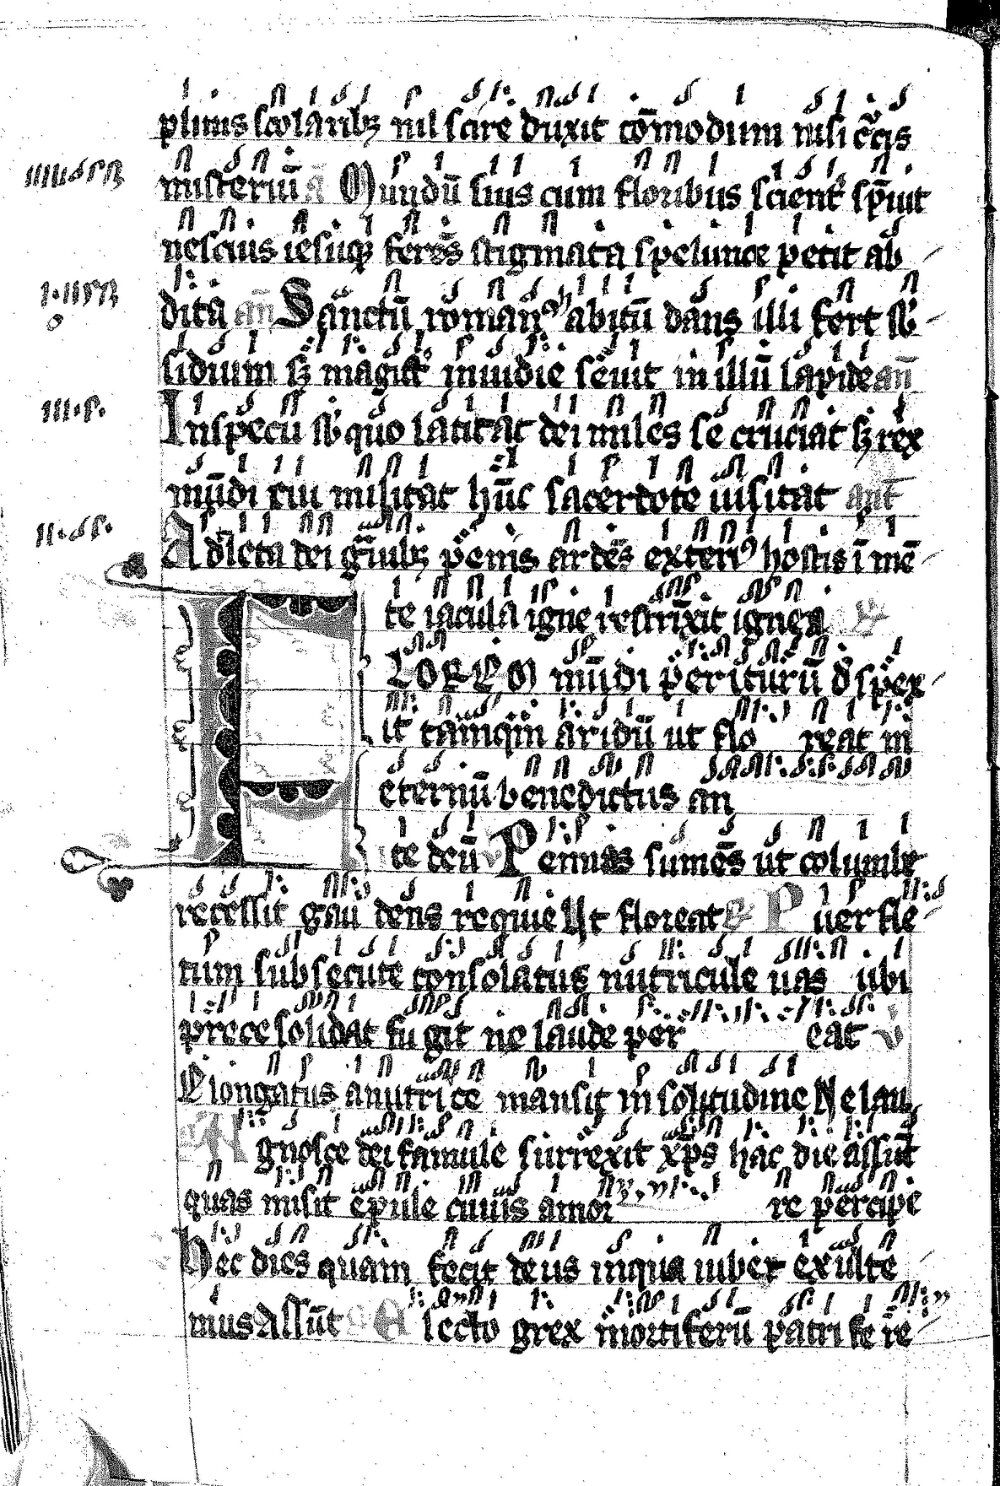 plinis scolaribꝫ nil scire duxit cō modum nisi cͨcis
misteriū a Mundū suis cum floribus scient᷑ sp̄uit
nescius iesuqꝫ ferēs stigmata spelunce petit ab
dita an̄ Sanctū romanꝰ abitū dans illi fert sb᷑
sidium sꝫ magist᷑ inuidie seuit in illū lapide an̄
In specu sb᷑ quo latitat dei miles se cruciat sꝫ rex
mūdi cui militat hūc sacerdote uisitat an̄t
Adleta dei ḡuibꝫ penis ardēs exterꝰ hostis ī mē
te iacula igne restrīxit ignea ℟
FLOREM mūdi periturū dˢpex
it tāmqm̄ aridū ut flo reat in
eternū benedictus an
te deū ℣ Pennas sumēs ut columbe
recessit gau dens requie Ut floreat ℟ Puer fle
tum subsecute consolatus nutricule uas ubi
prece solidat fu git ne laude per eat ℣
Elongatus a nutri ce mansit in solitudine Ne lau
℟ Agnosce dei famule surrexit xp̄s hac die assūt
quas misit epule cuius amor re percipe
℣ Hec dies quam fecit deus inqua iubet exulte
mus Assūt ℟ Electo grex mortiferū patri fe re